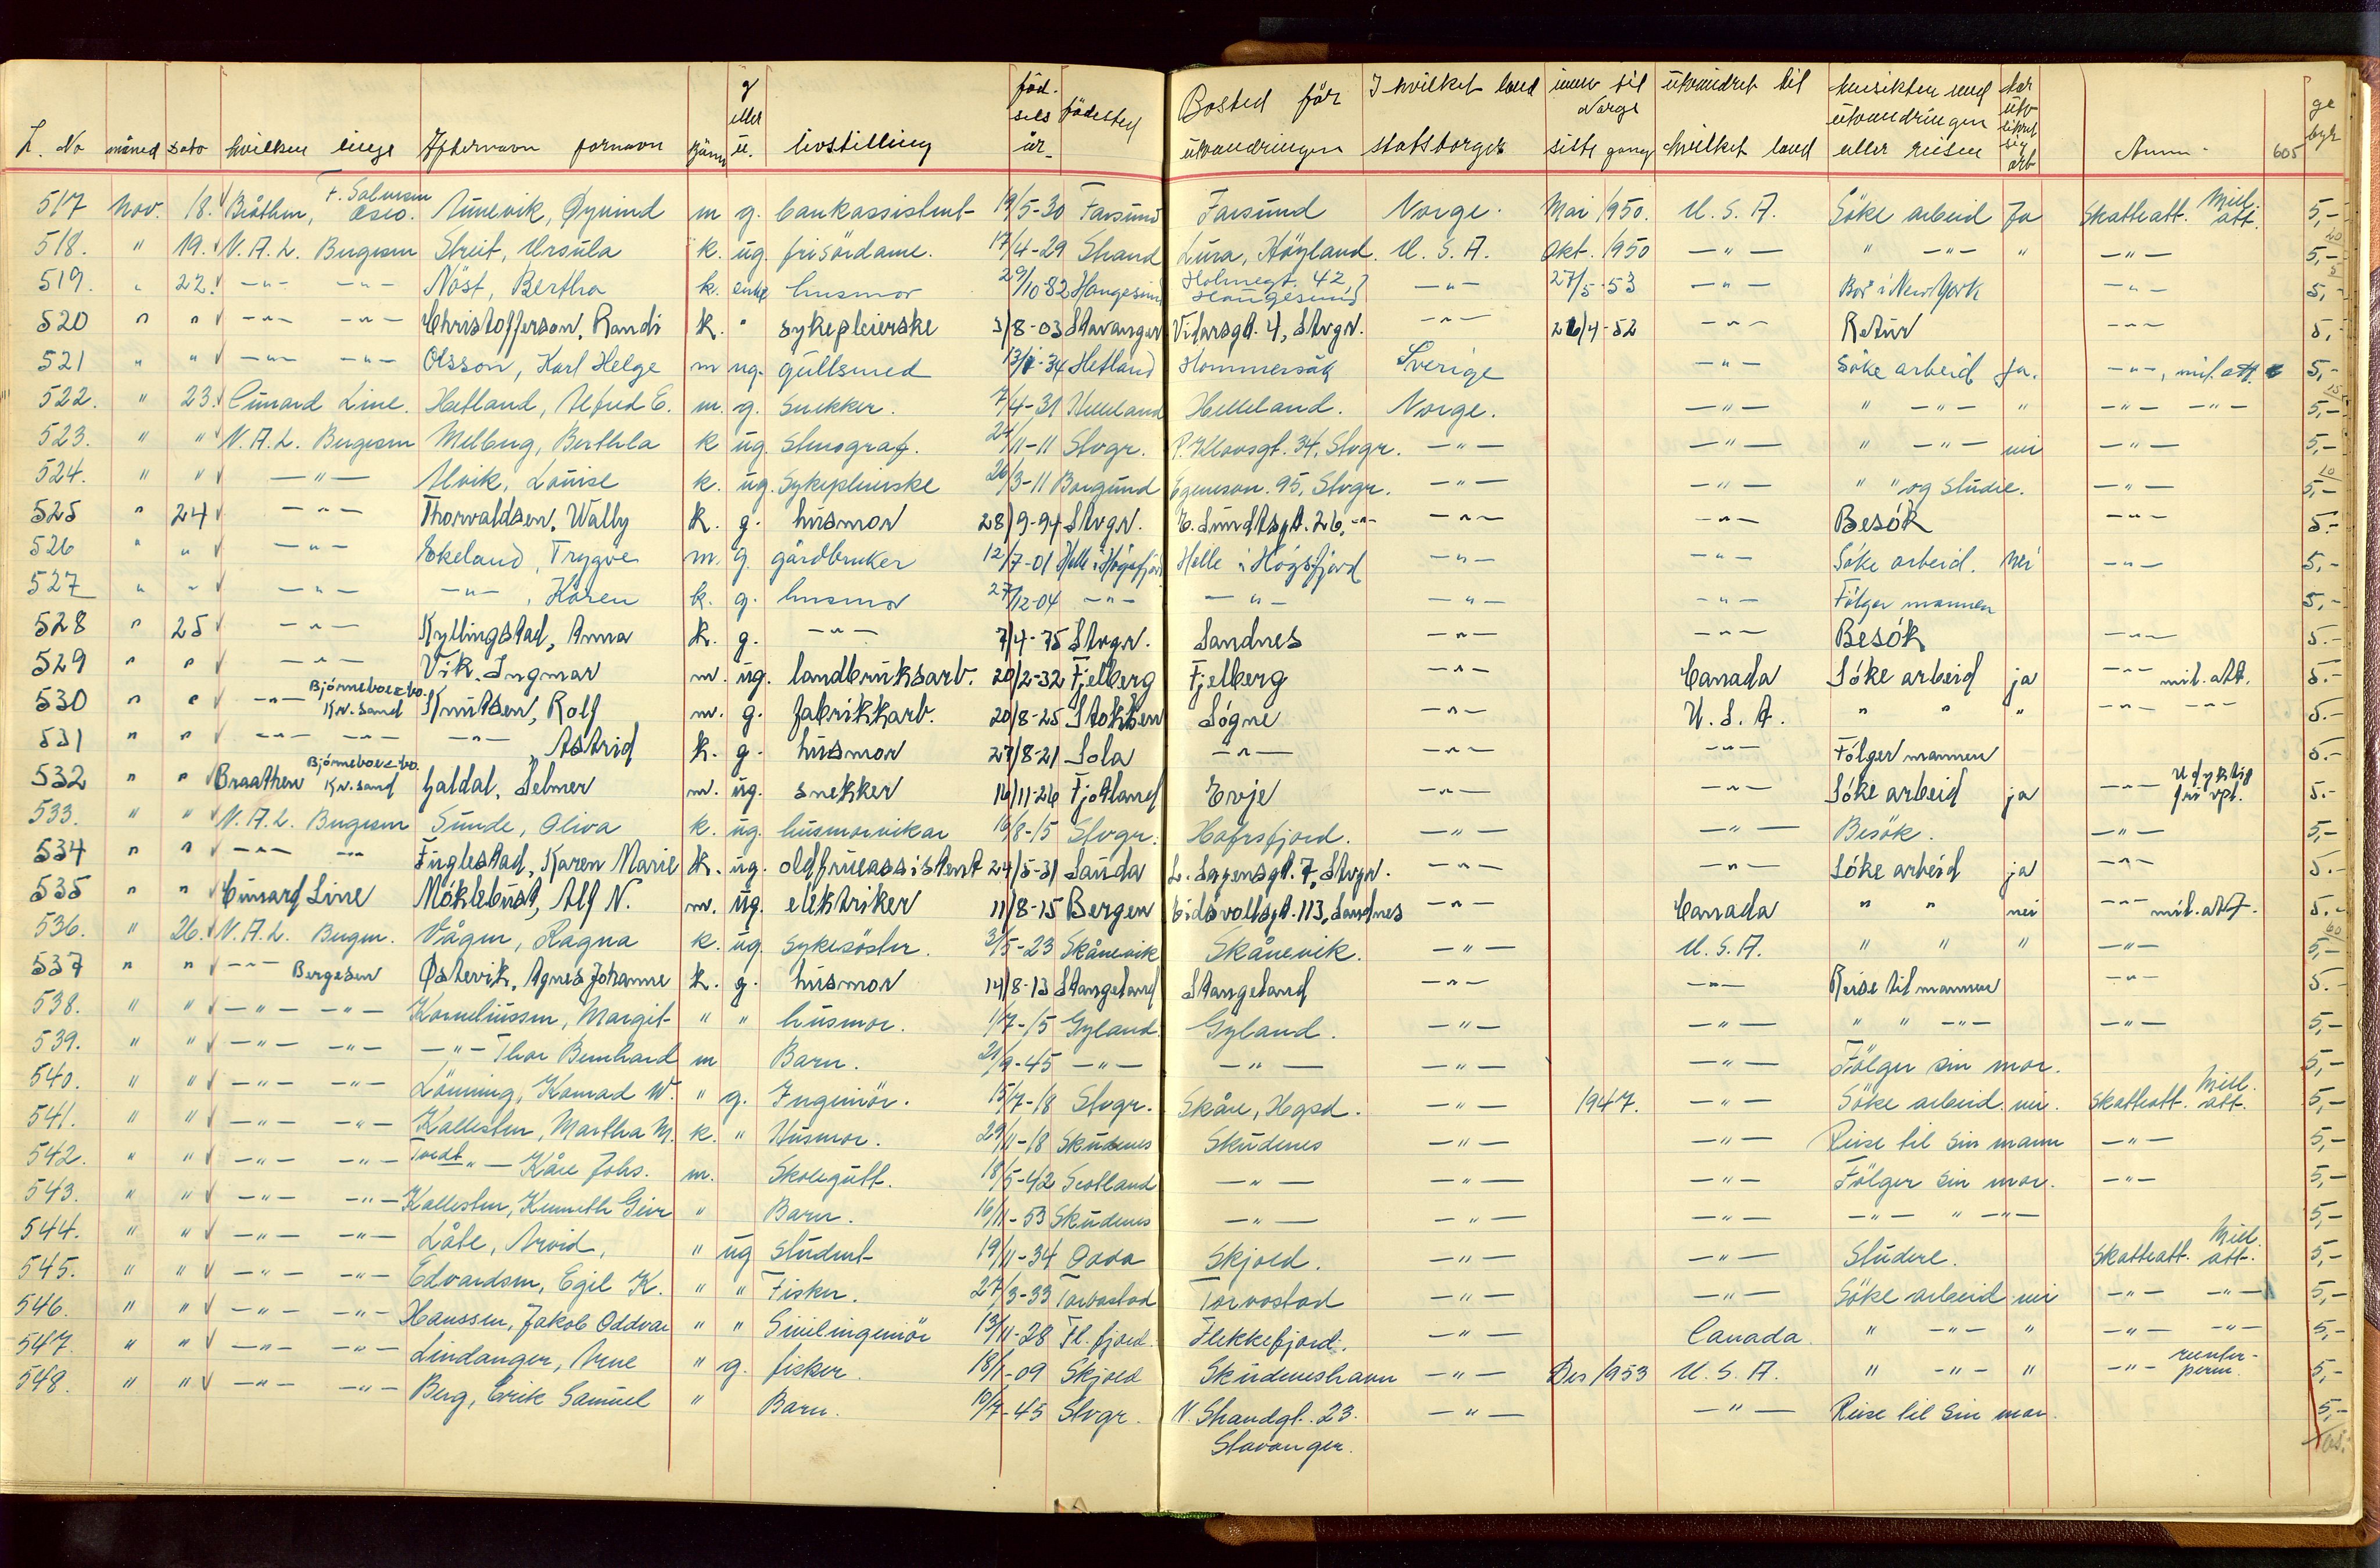 L. No måned dato hvilken linje Efternavn fornavn kjønn g eller u. livstilling fød- sels år fødested Bosted før utvandringen I hvilket land statsborger innv til Norge siste gang utvandret til hvilket land hensikten med utvandringen eller reisen har utv sikret sig arb Anm. 605 gebyr
517 Nov. 18. Bråthen, F. Salvesen Oslo. Aunevik, Øyvind m g. bankassistent 19/5-30 Farsund Farsund Norge. Mai 1950. U.S.A. Söke arbeid Ja Skatteatt. Mil. att. 5,-
518. " 19. N.A.L. Bergesen Streit, Ursula k. ug. frisördame. 17/4-29 Strand Lura, Höyland. U.S.A. Okt. 1950 -"- " -"- " -"- 5,-
519. " 22. -"- -"- Nöst, Bertha k. enke husmor 29/10-82 Haugesund Holmegt. 42, Haugesund -"- 27/5-53 -"- Bor i New York -"- 5,-
520 " " -"- -"- Christofferson, Randi k. " sykepleierske 3/8-03 Stavanger Vidarsgt. 4, Stvgr. -"- 26/4-52 -"- Retur -"- 5,-
521 " " -"- -"- Olsson, Karl Helge m ug. gullsmed 13/1-34 Hetland Hommersåk Sverige -"- Söke arbeid Ja. -"-, mil. att. 5,-
522. " 23. Cunard Line. Hetland, Alfred E. m. g. Snekker. 7/4-31 Helleland Helleland. Norge. -"- " -"- " -"- -"- 5,-
523. " " N.A.L. Bergesen Melberg, Berthla k ug. Stenograf. 24/11-11 Stvgr. P. Klowsgt. 34, Stvgr. -"- -"- " -"- nei -"- 5,-
524. " " -"- Alvik, Louise k. ug. Sykepleierske 26/3-11 Borgund Egenesvn. 95, Stvgr. -"- -"- " " og studie. -"- 5,-
525 " 24 -"- Thorvaldsen, Wally k. g. husmor 28/9-94 Stvgr. E. Sundtsgt. 26, -"- -"- -"- Besök -"- 5.-
526 " " -"- Eikeland, Trygve m. g. gårdbruker 12/7-01 Helle i Högsfjord Helle i Högsfjord -"- -"- Söke arbeid. Nei -"- 5,-
527 " " -"- -"-, Karen k. g. husmor 27/12-04 -"- -"- -"- -"- Fölger mannen 5,-
528 " 25 -"- Kyllingstad, Anna k. g. -"- 7/4-75 Stvgr. Sandnes -"- -"- Besök -"- 5.-
529 " " -"- Vik, Ingmar m. ug. landbruksarb. 20/2-32 Fjelberg Fjelberg -"- Canada Söke arbeid ja -"- mil. att. 5.-
530 " " -"- Björneboe & Co. Kr. sand Knutsen, Rolf m. g. fabrikkarb. 20/8-25 Stokken Sögne -"- U.S.A. " " " -"- -"- 5.-
531 " " -"- -"- -"-, Astrid k. g. husmor 27/8-21 Sola -"- -"- -"- Fölger mannen 5.-
532 " " Braathen Björneboe & Co. Kr. sand Galdal, Selmer m. ug. snekker 14/11-26 Fjotland Evje -"- -"- Söke arbeid ja -"- Udyktig for vpl. 5.-
533. " " N.A.L. Bergesen Sunde, Oliva k. ug. husmorvikar 16/8-15 Stvgr. Hafrsfjord. -"- -"- Besök. -"- 5,-
534 " " -"- -"- Fuglestad, Karen Marie k. ug. oldfrueassistent 24/5-31 Sauda L. Sagensgt. 7, Stvgr. -"- -"- Söke arbeid ja -"- 5.-
535 " " Cunard Line Möklebust, Alf N. m. ug. elektriker 11/8-15 Bergen Eidsvollsgt. 113, Sandnes -"- Canada " " nei -"- mil. att. 5.-
536. " 26. N.A.L. Bergen. Vågen, Ragna k. ug. Sykesöster. 3/5-23 Skånevik Skånevik. -"- U.S.A. " " " -"- 5,-
537 " " -"- Bergesen Østevik, Agnes Johanne k. g. husmor 14/8-13 Stangeland Stangeland -"- -"- Reise til mannen -"- 5.-
538. " " -"- -"- Korneliussen, Margit " " husmor. 1/7-15 Gyland. Gyland. -"- -"- " " -"- -"- 5,-
539. " " -"- -"- -"- Thor Bernhard m Barn. 21/9-45 -"- -"- -"- -"- Fölger sin mor. 5,-
540. " " -"- -"- Lönning, Konrad W. " g. Ingeniör. 15/7-18 Stvgr. Skåre, Hgsd. -"- 1947. -"- Söke arbeid. nei. Skatteatt. Mil. att. 5,-
541. " " -"- -"- Kallesten, Martha M. k. " Husmor. 29/11-18 Skudenes Skudenes -"- -"- Reise til sin mann -"- 5,-
542. " " -"- -"- -"- Kåre Johs. m. Skolegutt. 18/5-42 Scotland -"- -"- -"- Fölger sin mor. -"- 5,-
543. " " -"- -"- Kallesten, Kenneth Geir " Barn. 16/11-53 Skudenes -"- -"- -"- -"- " -"- 5,-
544. " " -"- -"- Låte, Arvid, " ug student 19/11-34 Odda Skjold. -"- -"- Studere. Skatteatt. Mil. att. 5,-
545. " " -"- -"- Edvardsen, Egil K. " " Fisker. 27/3-33 Torvastad Torvastad -"- -"- Söke arbeid nei -"- -"- 5,-
546. " " -"- -"- Hanssen, Jakob Oddvar " " Sivilingeniör 13/11-28 Fl. fjord. Flekkefjord. -"- Canada. " -"- " -"- -"- 5,-
547. " " -"- -"- Lindanger, Arne " g. fisker. 18/1-09 Skjold Skudeneshavn -"- Des 1953 U.S.A. " -"- " -"- 5,-
548. " " -"- -"- Berg, Erik Samuel " Barn. 10/7-45 Stvgr. N. Strandgt. 23. Stavanger. -"- -"- Reise til sin mor. 5,-